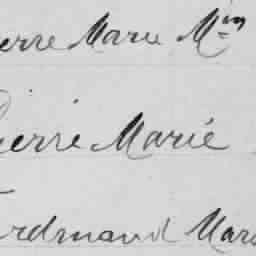 ierre Marie Min
Pierre Marie
erdinand Mari